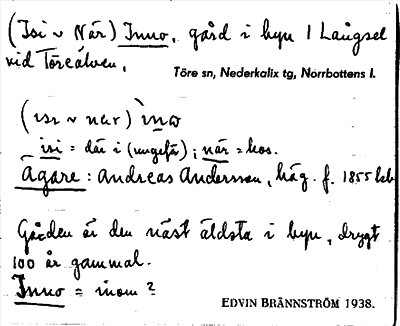 (Isi v När) Inno, gård i byn 1 Långsel
vid Töreälven,
Töre sn, Nederkalix tg, Norrbottens l.
(isi v nær) `ino
isi = där i (ungefär); när = hos.
Ägare: Andreas Andersson, häg. f. 1855
Gården är den näst äldsta i byn, drygt
100 år gammal.
Inno = inom?
EDVIN BRÄNNSTRÖM 1938.